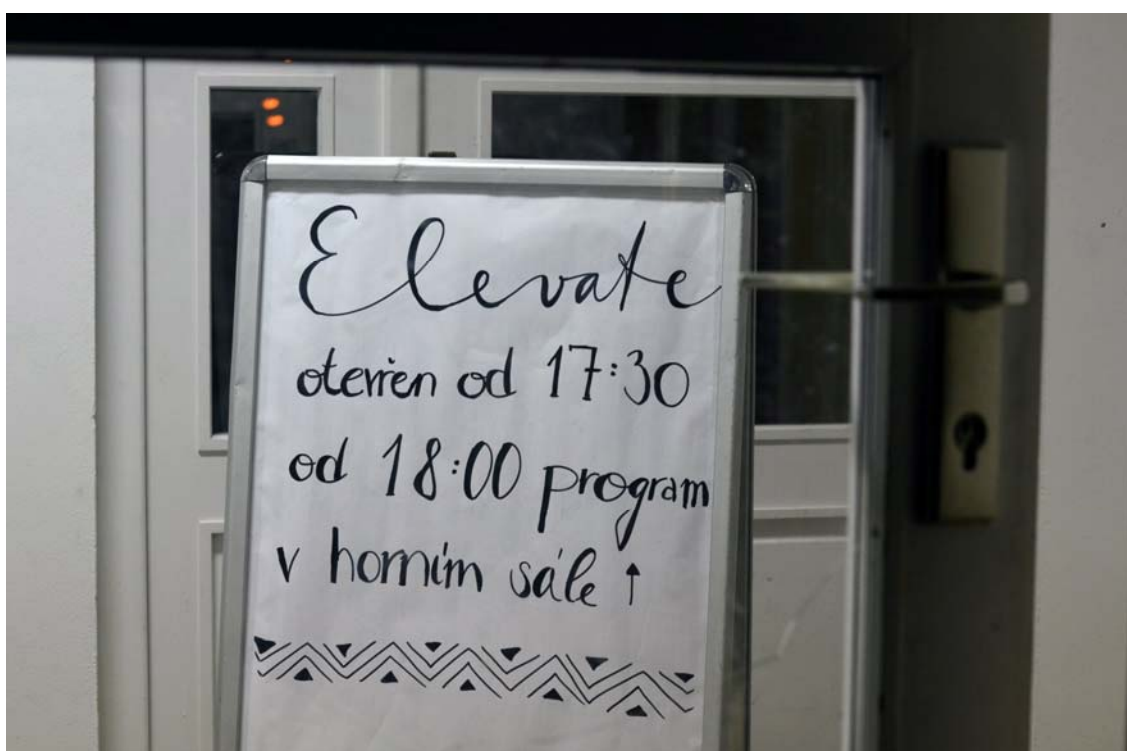 Elevate
otevřen od 17:30
od 18:00 program
v horním sále ↑